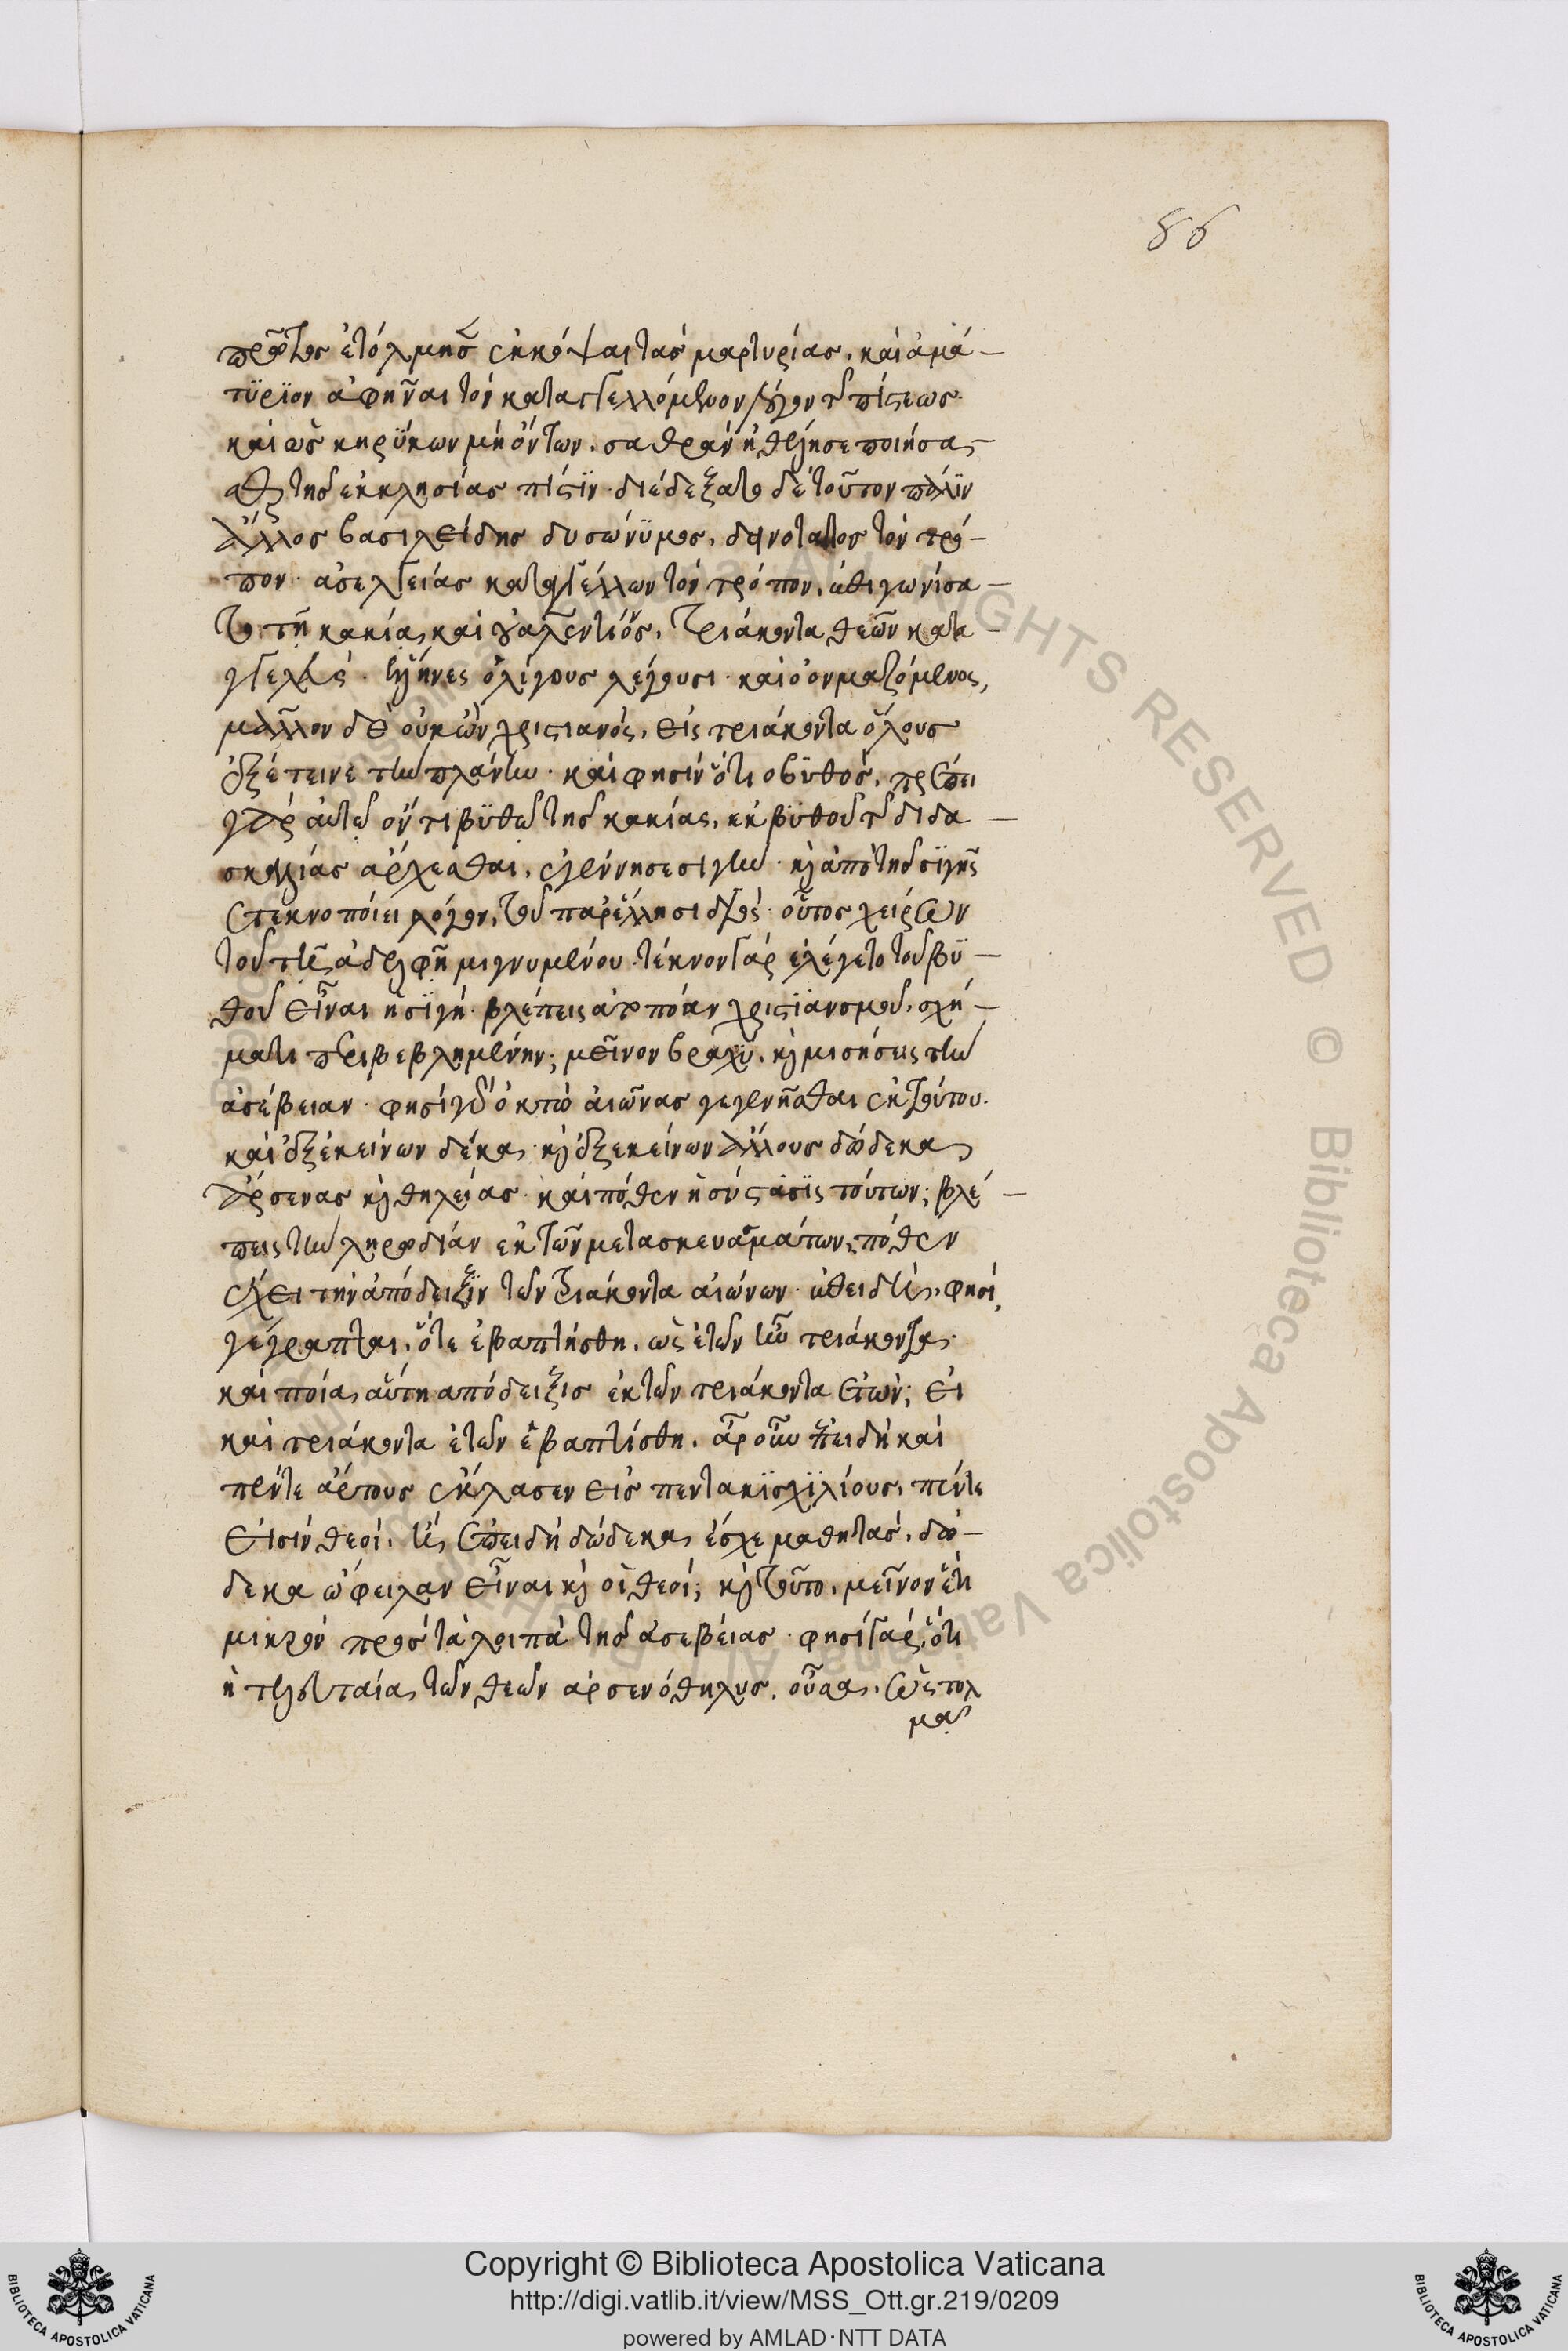 86
πρῶτος ἐτόλμησ ἐκκόψαι τὰς μαρτυρίας, καὶ ἀμά-
τϋρϊον ἀφῆναι τὸν καταγγελλόμενον λόγον τ πίστεως.
καὶ ὡς κηρύκων μὴ ὄντων. σαθρὰν ἠθέλησε ποιῆσα
τῆς ἐκκλησίας πίστϊν. διεδέξατο δὲ τοῦτον πάλϊν
ἄλλος βασιλείδης δυσώνϋμος, δεινότατος τὸν τρό-
πον. ἀσελγείας καταγγέλλων τὸν τρόπον. ἠγωνίσα-
το τῇ κακία καὶ οὐαλεντίνος, τριάκοντα θεῶν κατα-
γγελεύς. ἕλληνες ὀλίγους λέγουσι. καὶ ὁ ονμαζόμενος,
μᾶλλον δὲ οὐκ ὢν χριστιανός, εἰς τριάκοντα ὅλους
ἐξέτεινε τὴν πλάνην. καὶ φησὶν ὅτι ο βϋθός, πρέπει
γὰρ αὐτῶ ὄντι βϋθῶ τῆς κακίας, ἐκ βϋθοῦ τ διδα-
σκαλίας ἄρχεσθαι, ἐγέννησε σιγὴν. κὶ ἀπὸ τῆς σϊγῆς
ἐτεκνοποίει λόγον, τοῦ παρ' ἕλλησι διὸς. οὗτος χείρων
τοῦ τῇ ἀδελφῇ μιγνυμένου. τέκνον γὰρ ἐλέγετο τοῦ βϋ-
θοῦ εἶναι ἡ σϊγή. βλέπεις ἀτοπίαν χριστϊανσμοῦ, σχή-
ματι περιβεβλημένην; μεῖνον βραχὺ, κὶ μισήσεις τὴν
ἀσέβειαν. φησὶ γὰρ ὀκτὼ αἰῶνας γεγενῆσθαι ἐκ τούτου.
καὶ ἐξ ἐκείνων δέκα, κὶ ἐξ ἐκείνων ἄλλους δώδεκα,
ἄρσενας κὶ θηλείας. καὶ πόθεν ἡ σύστασϊς τούτων; βλέ-
πεις τὴν ληρωδίαν ἐκ τῶν μετασκευασμάτων, πόθεν
ἔχει τὴν ἀπόδειξϊν τῶν τριάκοντα αἰώνων. φησὶ,
γέγραπται, ὅτε ἐβαπτήσθη, ὡς ἐτῶν ἦν τριάκοντα.
καὶ ποία αὕτη ἀπόδειξις ἐκ τῶν τριάκοντα ἐτῶν; εἰ
καὶ τριάκοντα ἐτῶν ἐβαπτίσθη. ἆρ οὖν ἐπειδὴ καὶ
πέντε ἄρτους ἔκλασεν εἰς πεντακϊσχϊλίους, πέντε
εἰσὶν θεοί. ἢ ἐπειδὴ δώδεκα ἔσχε μαθητάς, δώ-
δεκα ὤφειλαν εἶναι κὶ οἱ θεοί; κὶ τοῦτο. μεῖνον ἔτι
μικρὸν πρὸς τὰ λοιπὰ τῆς ἀσεβείας. φησὶ γὰρ, ὅτι
ἡ τελευταία τῶν θεῶν ἀρσενόθηλυς. οὖσα, ὡς τολ
μᾶ
Copyright © Biblioteca Apostolica Vaticana
http://digi.vatlib.it/view/MSS_Ott.gr.219/0209
powered by AMLAD·NTT DATA